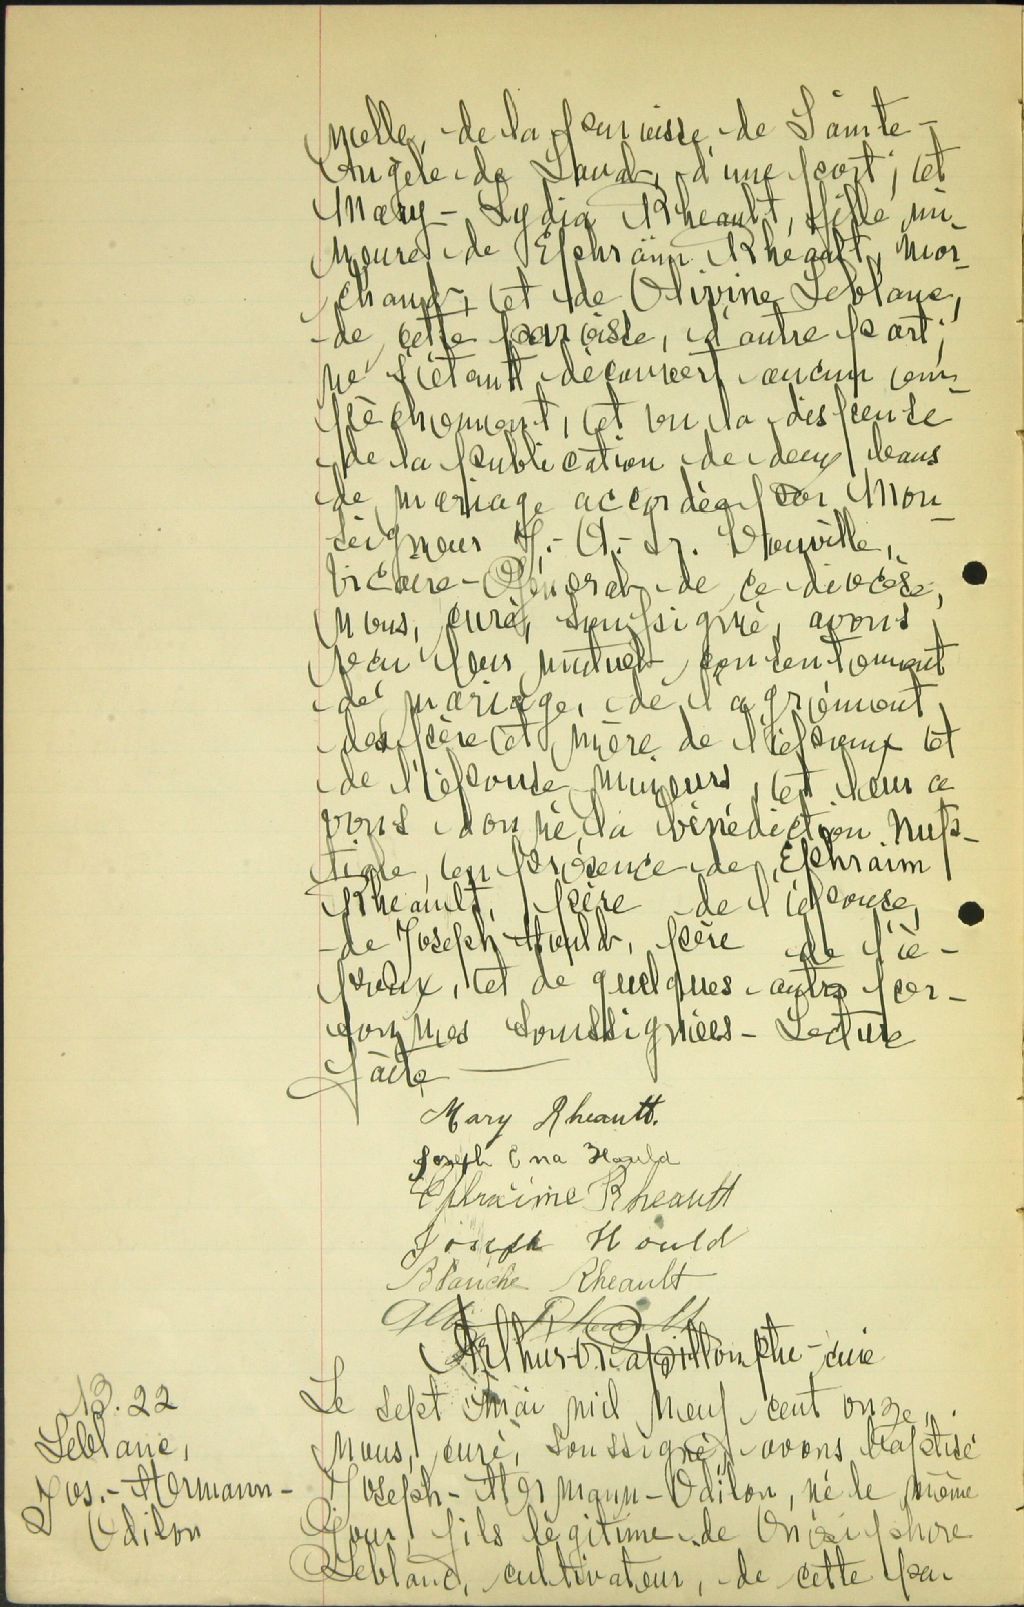 melle, de la paroisse de Sainte-
Angèle de Laval, d'une part; et
Mary-Lydia Rheault, fille mi-
neure de Ephraïm Rheault, mar-
chand, et de Olivine Leblanc,
de cette paroisse, d'autre part;
ne s'étant découvert aucun em-
pêchement, et vu la dispense
de la publication de deux bans
de mariage accordée par Mon-
seigneur H.-A.- Douville,
Vicaire-Général de ce diocèse,
nous, curé, soussigné, avons
reçu leur mutuel consentement
de mariage, de l'agrément
des père et mère de l'époux et
de l'épouse mineurs, et leur a
vons donné la bénédiction nup-
tiale, en présence de Ephraim
Rheault, père de l'épouse,
de Joseph Hould, père de l'é-
poux, et de quelques autres per-
sonnes soussignées- Lecture
faite
Mary Rheault.
Joseph Hould
Ephraime Rheault
Joseph Hould
Blanche Rheault
Rheault
Arthur ptre-curé
B.22
Leblanc,
Jos.-Hermann-
Odilon
Le sept mai mil neuf cent onze,
nous, curé, soussigné, avons baptisé
Joseph-Hermann-Odilon, né le même
jour, fils légitime de Onésiphore
Leblanc, cultivateur, de cette pa